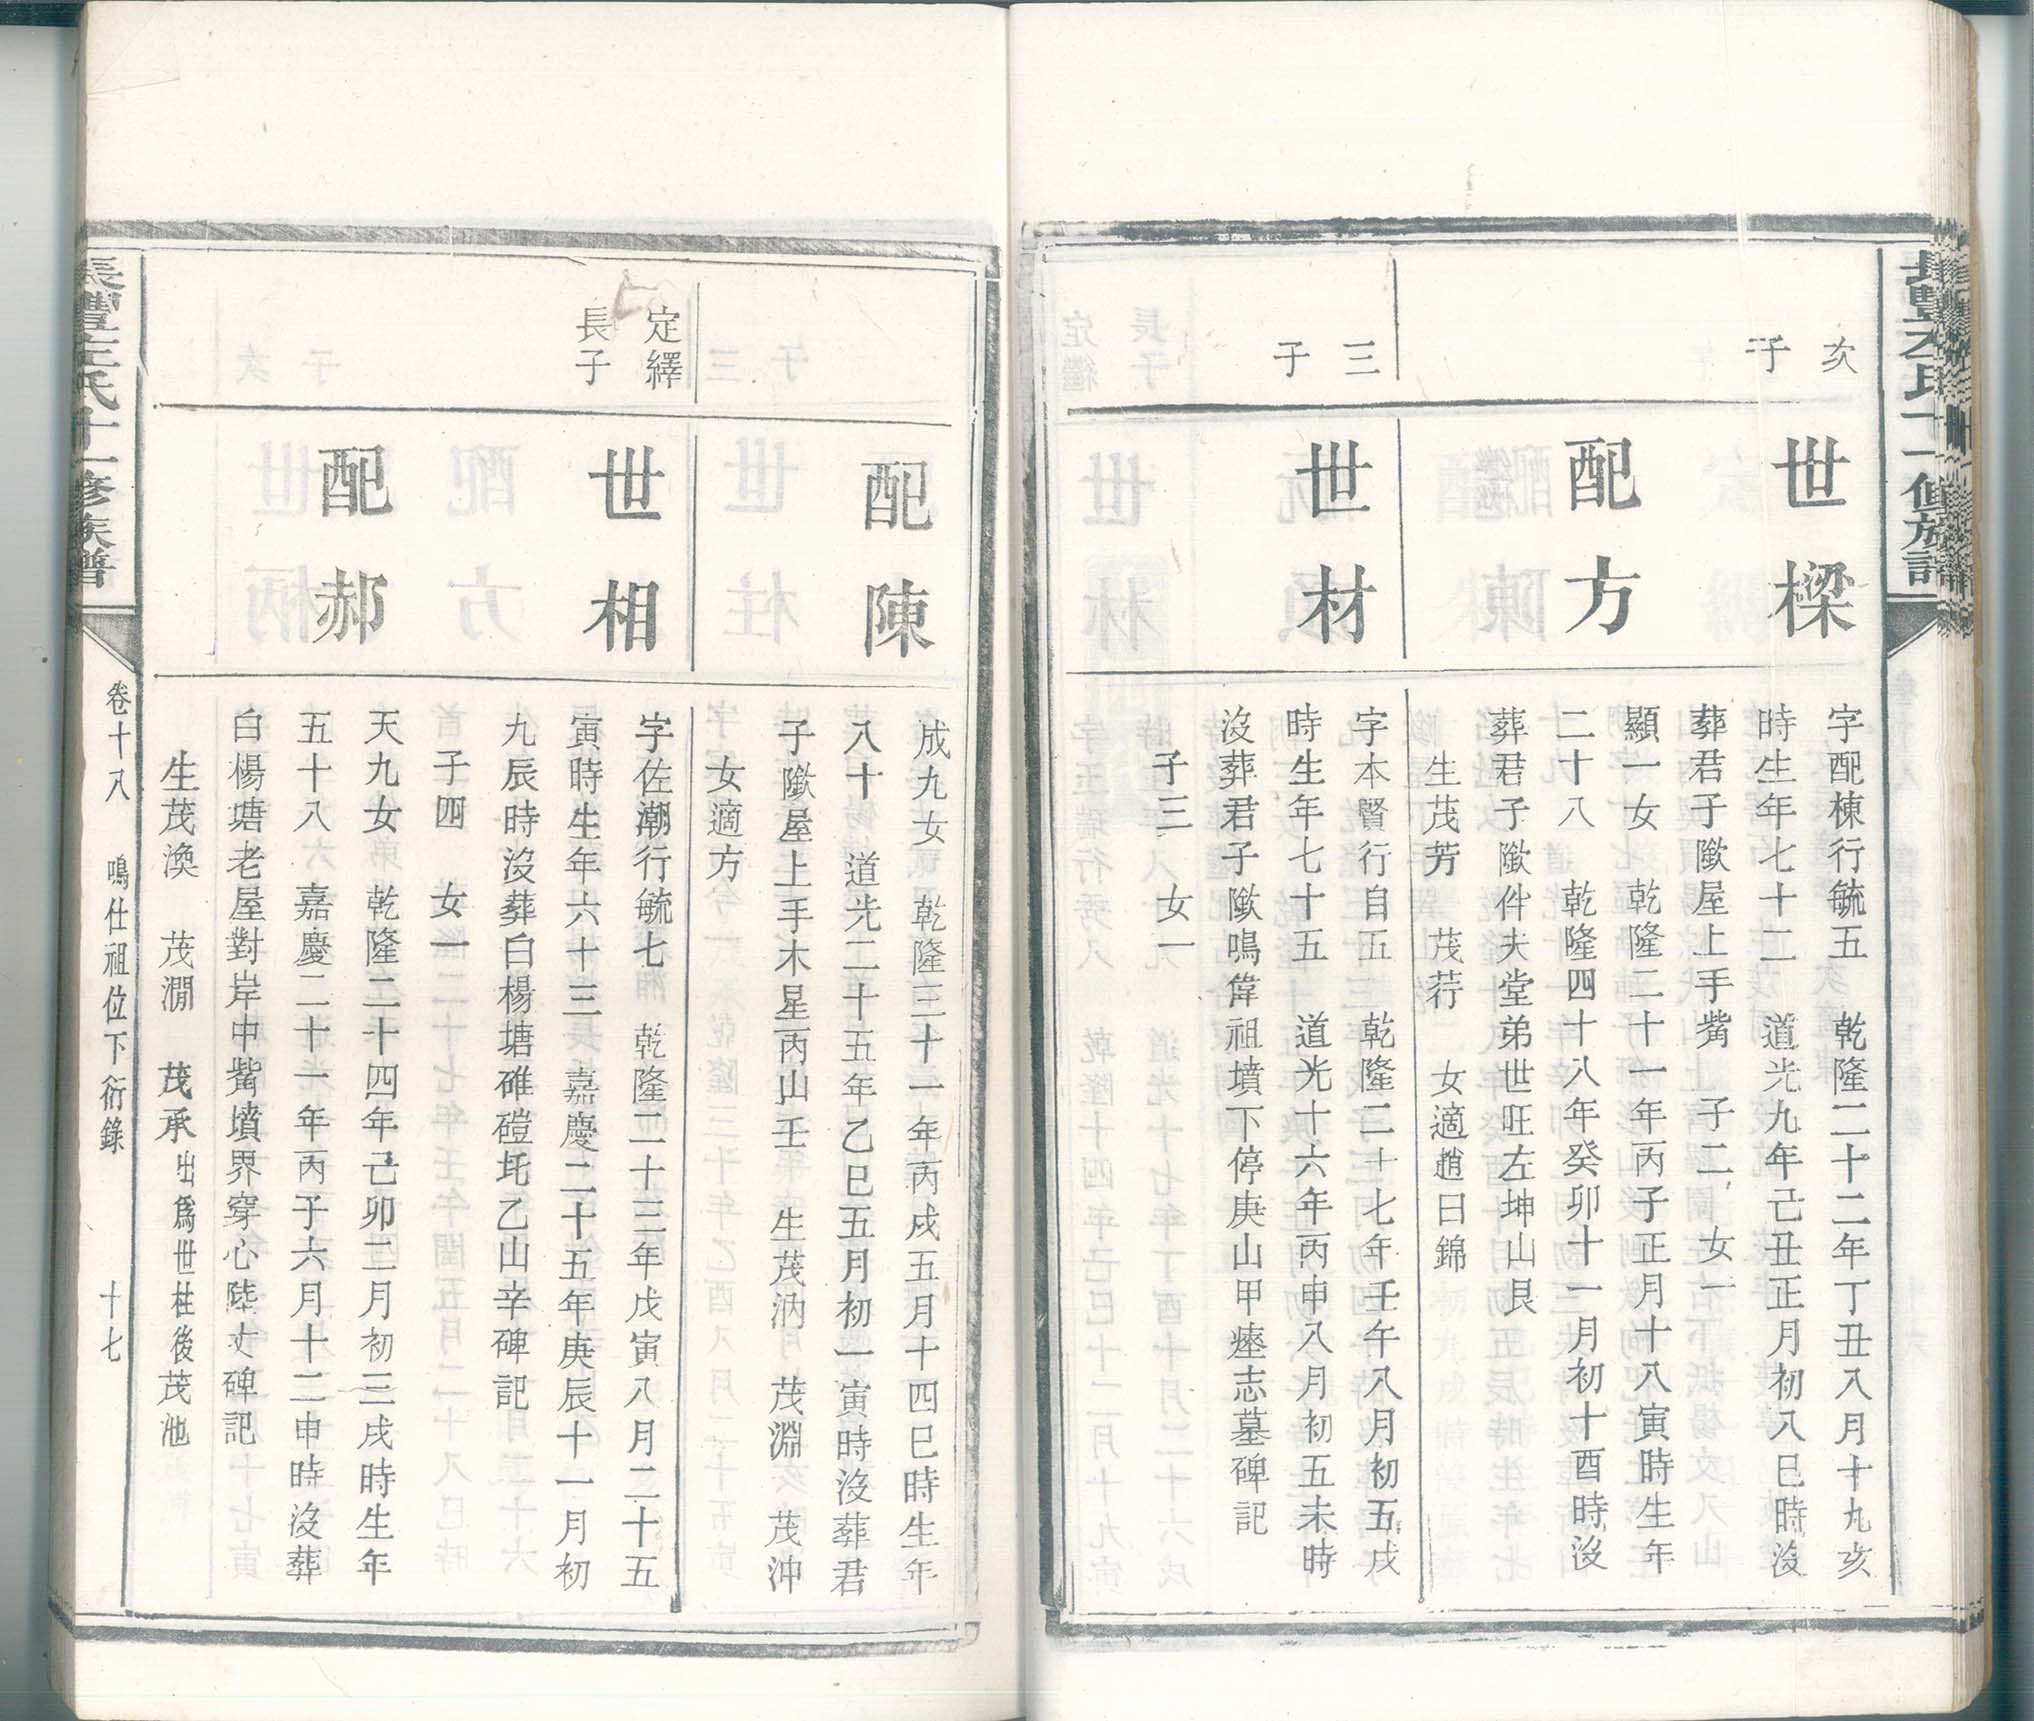 次
子
世樑
字配棟行毓五　乾隆二十二年丁丑八月十九亥
時生年七十二　道光九年己丑正月初八巳時沒
葬君子隞屋上手觜　子二　女一
配方
顯一女　乾隆二十一年丙子正月十八寅時生年
二十八　乾隆四十八年癸卯十一月初十酉時沒
葬君子隞仵夫堂弟世旺左坤山艮
生茂芳　茂荇　女適趙日錦
三
子
世材
字本賢行自五　乾隆二十七年壬午八月初五戌
時生年七十五　道光十六年丙申八月初五未時
沒葬君子隞鳴偉祖墳下停庚山甲瘞志墓碑記
子三　女一
配陳
成九女　乾隆三十一年丙戌五月十四巳時生年
八十　道光二十五年乙巳五月初一寅時沒葬君
子隞屋上手木星丙山壬　生茂汭　茂淵　茂沖
女適方
定繹
長子
世相
字佐潮行毓七　乾隆二十三年戊寅八月二十五
寅時生年六十三　嘉慶二十五年庚辰十一月初
九辰時沒葬白楊塘碓磑坉乙山辛碑記
子四　女一
配郝
天九女　乾隆二十四年己卯二月初三戌時生年
五十八　嘉慶二十一年丙子六月十二申時沒葬
白楊塘老屋對岸中觜墳界穿心陸丈碑記
生茂渙　茂澗　茂承出爲世柱後茂池
長豐左氏十一修族譜
卷十八　鳴仕祖位下衍錄　十七